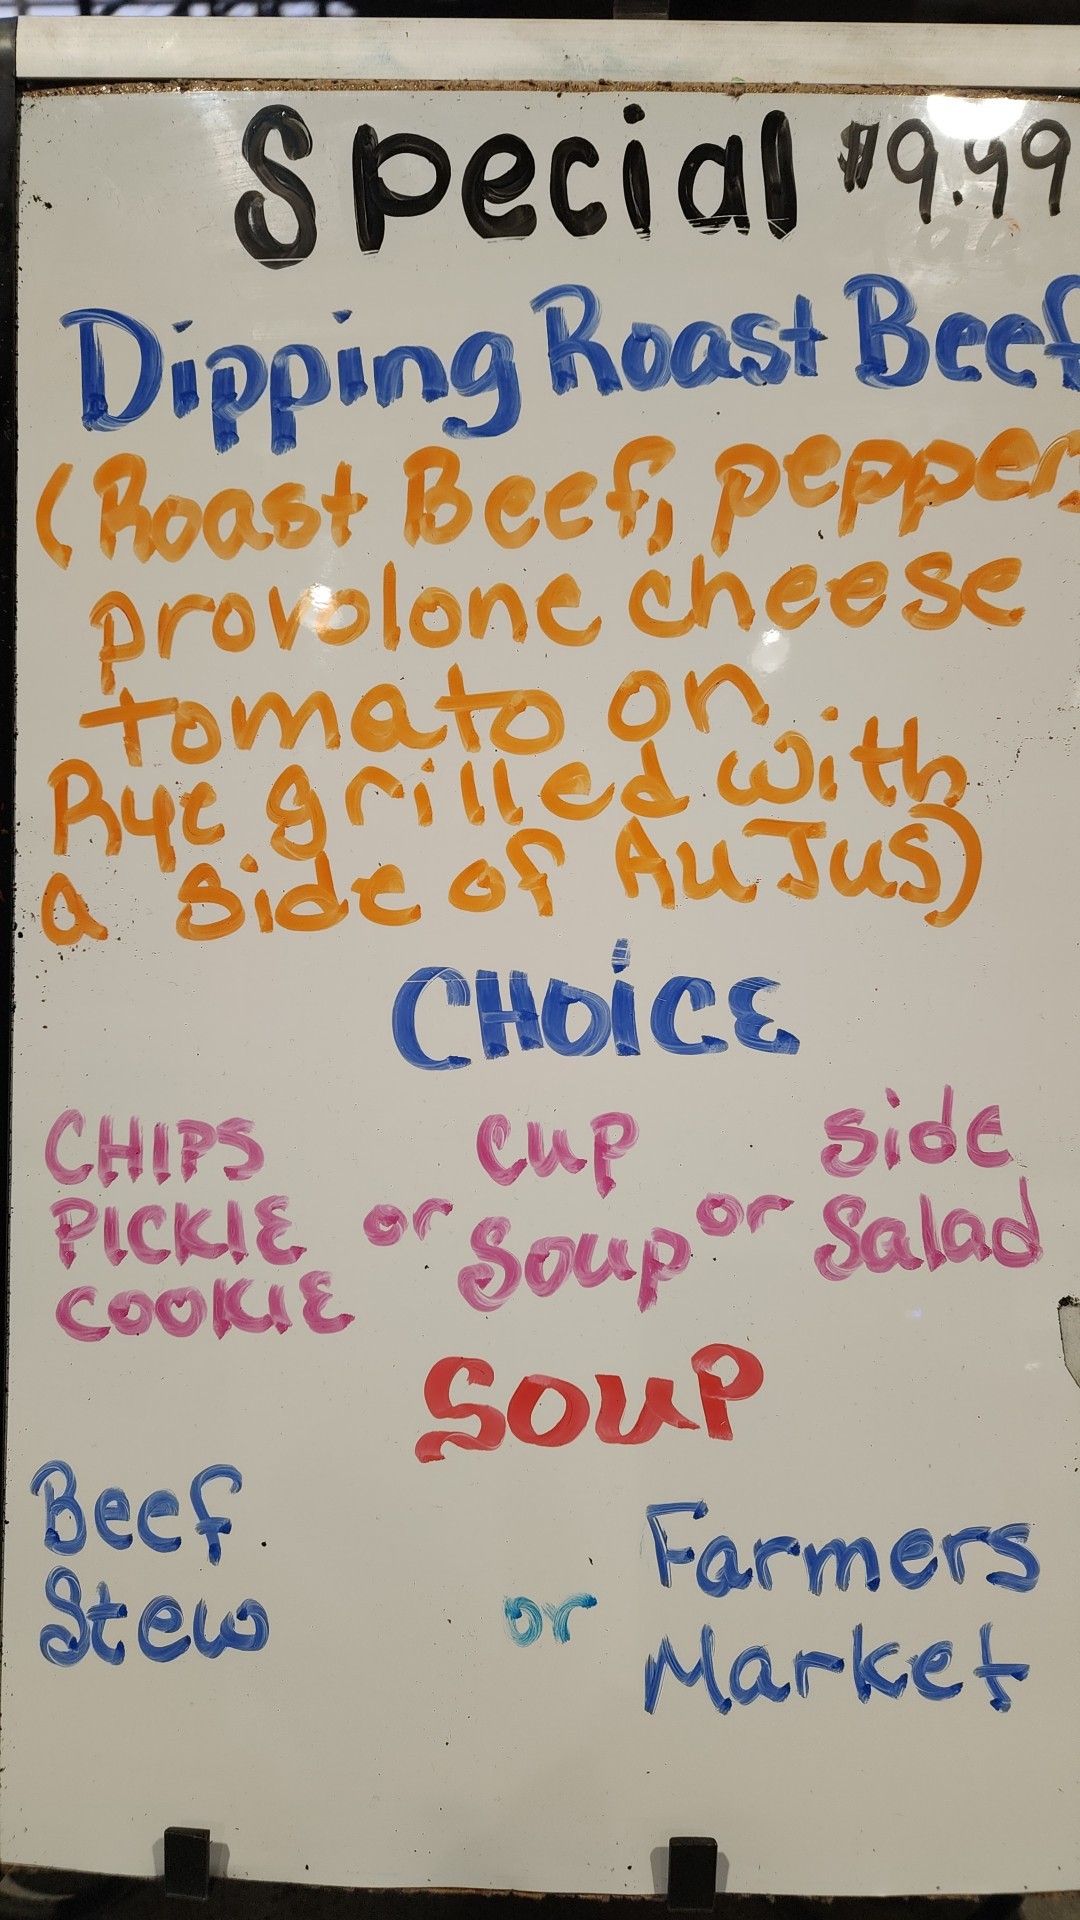 Special $9.99
Dipping Roast Beef
(Roast Beef, pepper,
provolone cheese
tomato on
Rye grilled with
a side of Au Jus)
CHOiCE
CHIPS
PICKLE
COOKIE
or
cup
Soup
or
side
Salad
SOUP
Beef
Stew
or
Farmers
Market